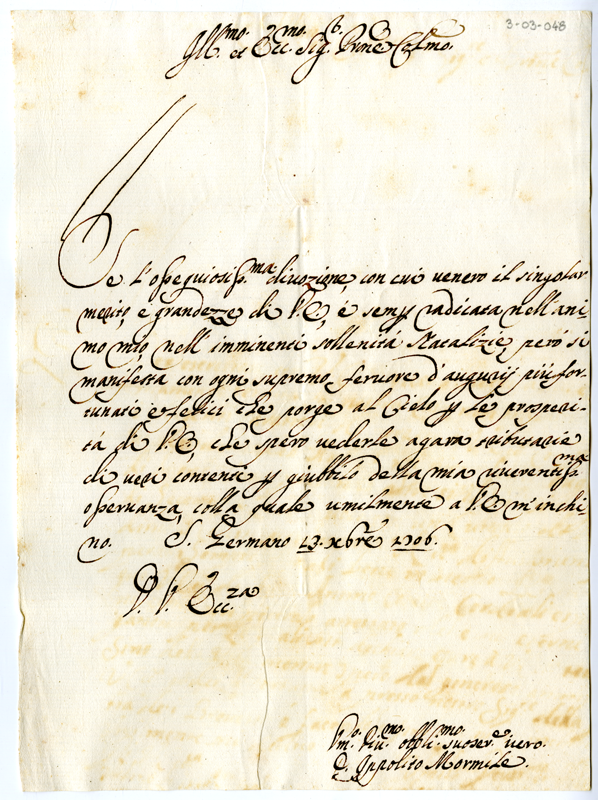 3-03-048
Ill.mo et Ecc.mo Sig.r Prne Col.mo
Se l'ossequiosiss.ma divozione, con cui venero il singolar
merito, e grandezze di V.E, è semp radicata nell'ani
mo mio, nell'imminenti sollenità Natalizie, però si
manifesta con ogni supremo fervore d'augurij più for-
tunati e felici che porge al Cielo p le prosperi-
tà di V.E, che spero vederle a gara tributarie
di veri contenti p giubbilo della mia riverentiss.ma
osservanza, colla quale umilmente a V.E m'inchi-
no. S. Germano 13. Xbre 1706.
D. V. Ecc.za
Um.o Div.mo obbli.mo suo ser.e vero
D. Ippolito Mormile